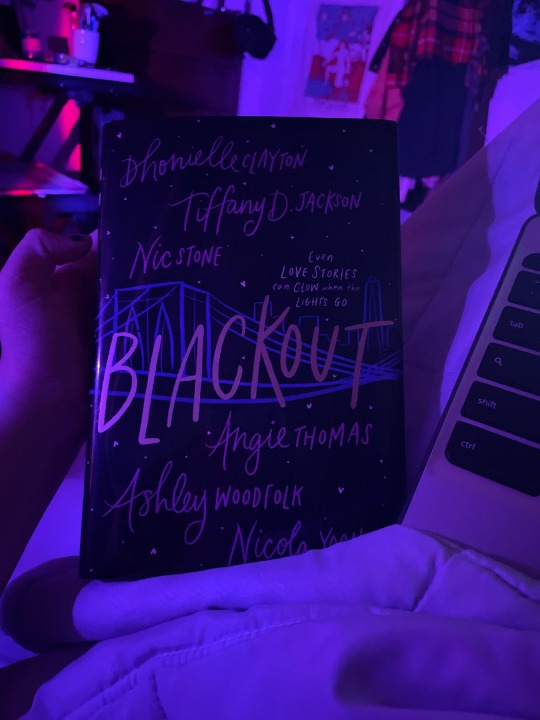 Dhonielle CLAYTON
Tiffany D. JACKSON
Nic STONE
Even
LOVE STORIES
can GLOW when the
LIGHTS GO
BLACKOUT
Angie THOMAS
Ashley WOODFOLK
Nicola Yoon
tab
shift
ctrl